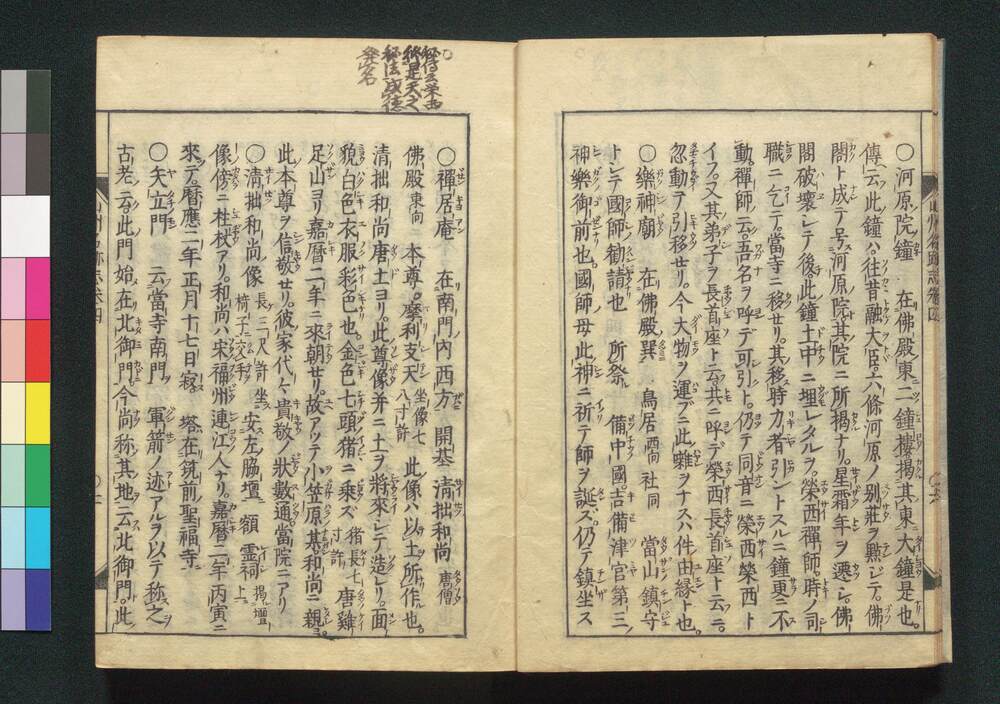 ○河原院鐘 在佛殿東ニ鐘樓掲其東ニ大鐘是也。
傳云此鐘ハ往昔融大臣六條河原ノ別荘ヲ點シテ佛
閣ト成テ号ス河原院其院ニ所掲ナリ。星霜年ヲ遷シ。佛
閣破壊シテ後。此鐘土中ニ埋レタルヲ。榮西禪師時ノ司
職ニ乞テ。當寺ニ移セリ。其移時力者引ントスルニ鐘更ニ不
動。禪師云吾名ヲ呼デ可引ト。仍テ同音ニ榮西榮西ト
イフ。又其弟子ヲ長首座ト云共ニ呼テ榮西長首座ト云ニ。
忽動テ引移セリ。今大物ヲ運ブニ此囃ヲナスハ件由縁ト也。
○樂神廟 在佛殿巽 鳥居西向 社同 當山鎮守
トシテ國師勧請也 所祭 備中國吉備津宮第三ノ
神樂御前也。國師母此神ニ祈テ師ヲ誕ス。仍テ鎮坐ス
秘傳云榮西
終是天之
秘法成徳
発名
○禪居庵 在南門内西方 開基清拙和尚 唐僧
佛殿東向 本尊。摩利支天 坐像七八寸許 此像ハ以土所作也。
清拙和尚唐土ヨリ。此尊像并ニ土ヲ將來シテ造レリ。面
貌白色衣服彩色也。金色七頭猪ニ乗ズ 猪長七寸許 唐雞
足山ヨリ嘉暦二年ニ來朝セリ。故アツテ小笠原某和尚ニ親ミ
此本尊ヲ信敬セリ。彼家代々貴敬ノ狀數通當院ニアリ
○清拙和尚像 長三尺許坐椅子ニ叉手 安左脇壇 額 靈祠 掲壇上
像傍ニ柱杖アリ。和尚ハ宋福州連江人ナリ。嘉暦二年丙寅ニ
來テ。暦應二年正月十七日寂。 塔在筑前聖福寺
○矢立門 云當寺南門 軍箭ノ迹アルヲ以テ称之
古老云。此門始在北御門今尚称其地云北御門。此